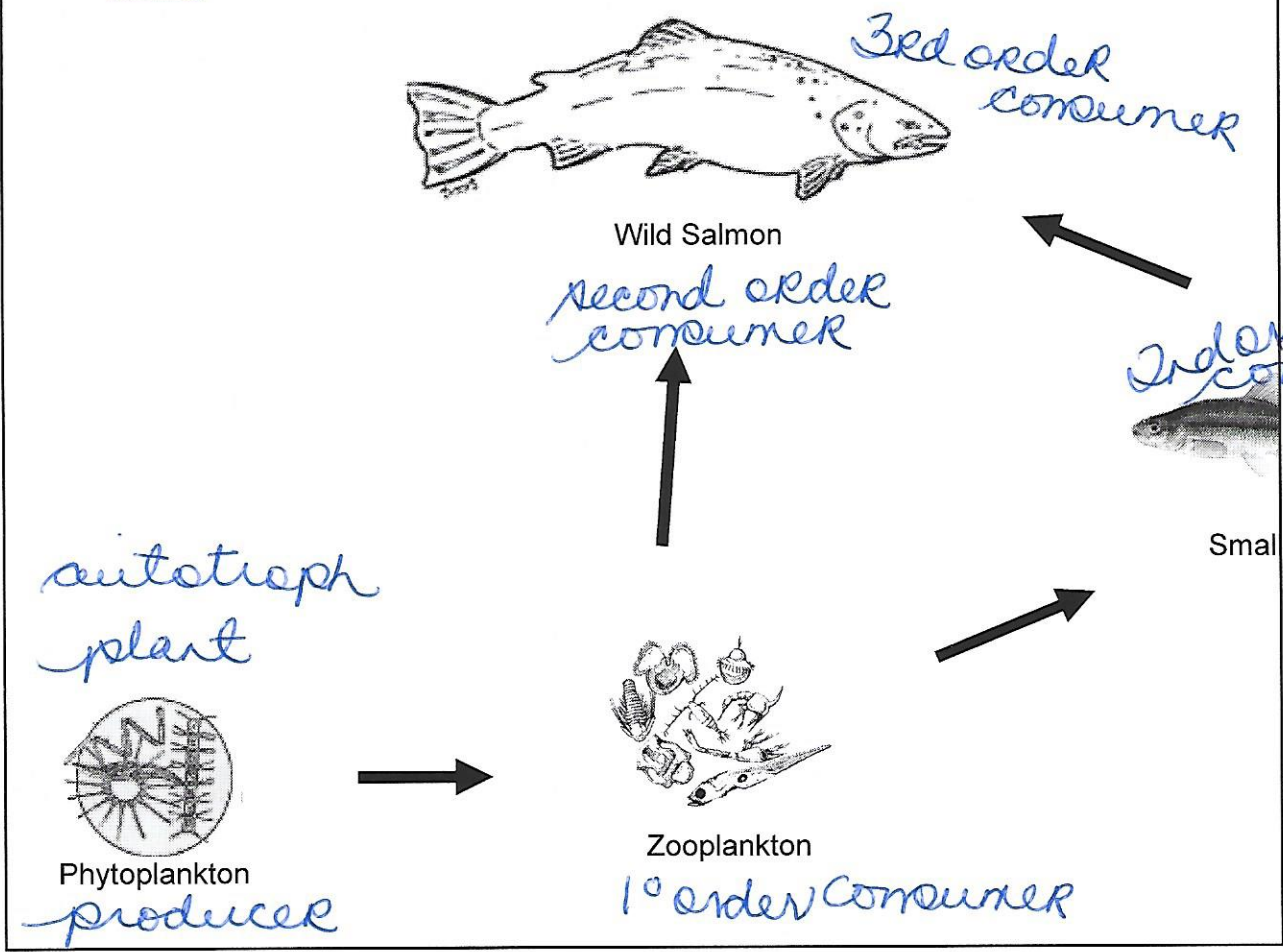 3rd order
consumer
Wild Salmon
second order
consumer
2nd or
co
Smal
autotroph
plant
Phytoplankton
producer
Zooplankton
1° order consumer